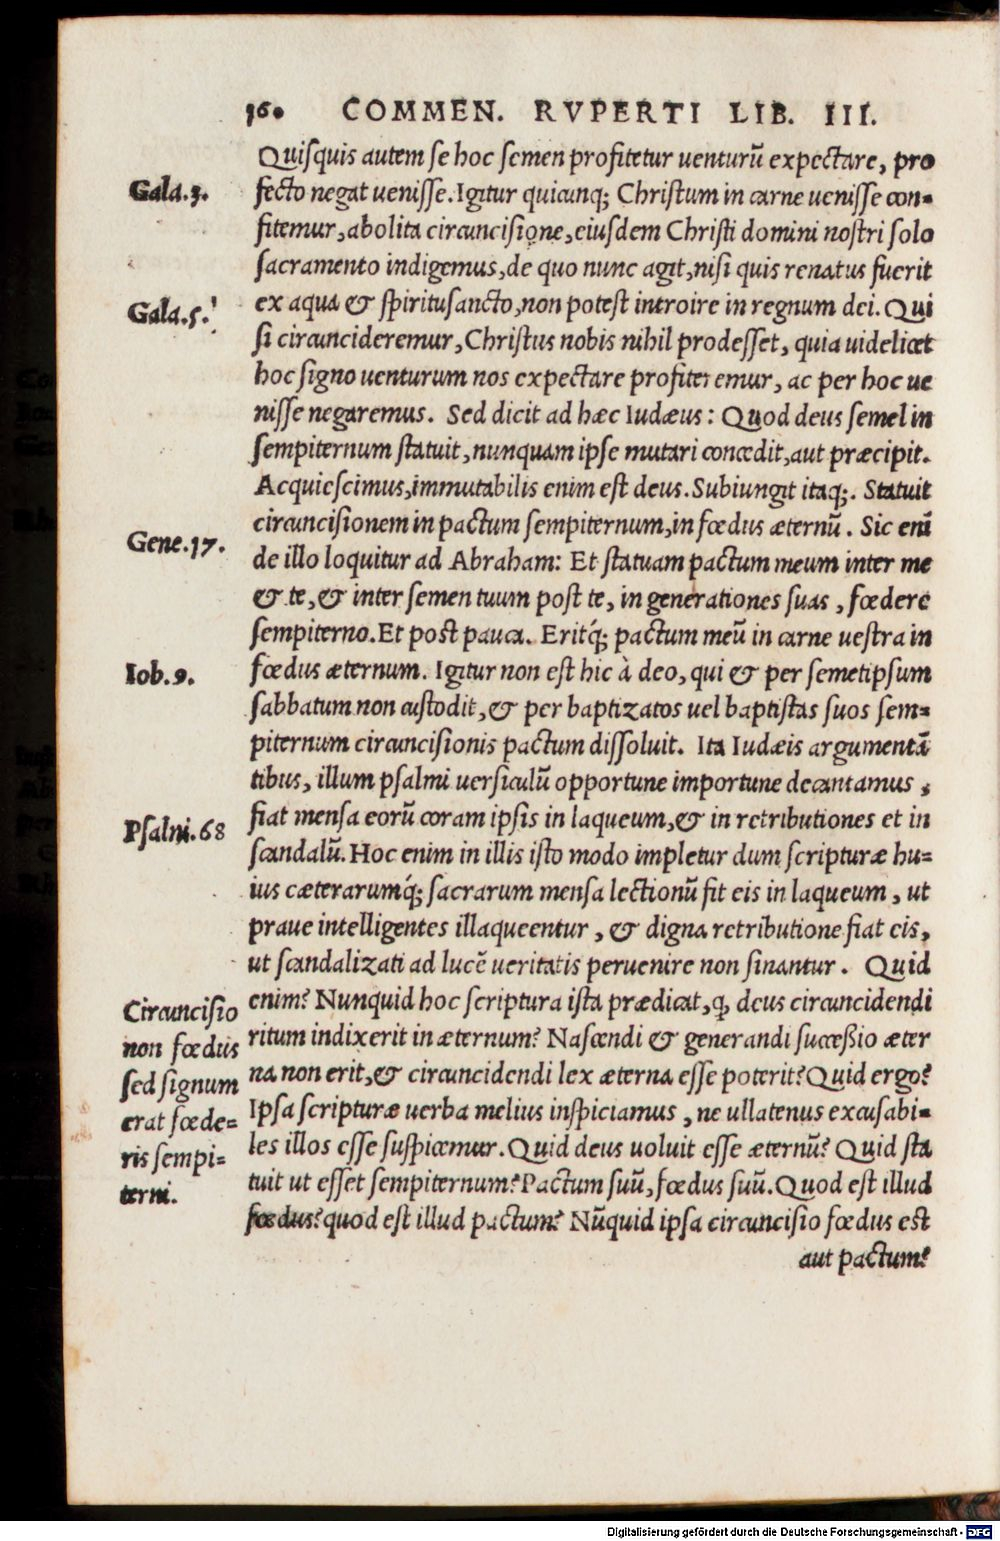 160 COMMEN. RVPERTI LIB. III.
Quiſquis autem ſe hoc ſemen profitetur uenturũ expectare, pro
Gala.3.
fecto negat ueniſſe. Igitur quicunq; Chriſtum in carne ueniſſe con=
fitemur, abolita circunciſione, eiuſdem Chriſti domini noſtri ſolo
ſacramento indigemus, de quo nunc agit, niſi quis renatus fuerit
Gala.5.
ex aqua & ſpirituſancto, non poteſt introire in regnum dei. Qui
ſi circuncideremur, Chriſtus nobis nihil prodeſſet, quia uidelicet
hoc ſigno uenturum nos expectare profiteremur, ac per hoc ue
niſſe negaremus. Sed dicit ad hæc Iudæus: Quod deus ſemel in
ſempiternum ſtatuit, nunquam ipſe mutari concedit, aut præcipit.
Acquieſcimus, immutabilis enim eſt deus. Subiungit itaq;. Statuit
circunciſionem in pactum ſempiternum, in fœdus æternũ. Sic eni̅
Gene.17.
de illo loquitur ad Abraham: Et ſtatuam pactum meum inter me
& te, & inter ſemen tuum poſt te, in generationes ſuas, fœdere
ſempiterno. Et poſt pauca. Eritq́; pactum meũ in carne ueſtra in
Iob.9.
fœdus æternum. Igitur non eſt hic à deo, qui & per ſemetipſum
ſabbatum non cuſtodit, & per baptizatos uel baptiſtas ſuos ſem=
piternum circunciſionis pactum diſſoluit. Ita Iudæis argumentã
tibus, illum pſalmi uerſiculũ opportune importune decantamus,
Pſalm.68
fiat menſa eorũ coram ipſis in laqueum, & in retributiones et in
ſcandalũ. Hoc enim in illis iſto modo impletur dum ſcripturæ hu=
ius cæterarumq́; ſacrarum menſa lectionũ fit eis in laqueum, ut
praue intelligentes illaqueentur, & digna retributione fiat eis,
ut ſcandalizati ad lucẽ ueritatis peruenire non ſinantur. Quid
enim? Nunquid hoc ſcriptura iſta prædicat, ꝙ deus circuncidendi
ritum indixerit in æternum? Naſcendi & generandi ſucceßio æter
na non erit, & circuncidendi lex æterna eſſe poterit? Quid ergo?
Ipſa ſcripturæ uerba melius inſpiciamus, ne ullatenus excuſabi=
les illos eſſe ſuſpicemur. Quid deus uoluit eſſe æternũ? Quid ſta
tuit ut eſſet ſempiternum? Pactum ſuũ, fœdus ſuũ. Quod eſt illud
fœdus? quod eſt illud pactum? Nũquid ipſa circunciſio fœdus eſt
aut pactum?
Circunciſio
non fœdus
ſed ſignum
erat fœde=
ris ſempi=
terni.
Digitalisierung gefördert durch die Deutsche Forschungsgemeinschaft - DFG